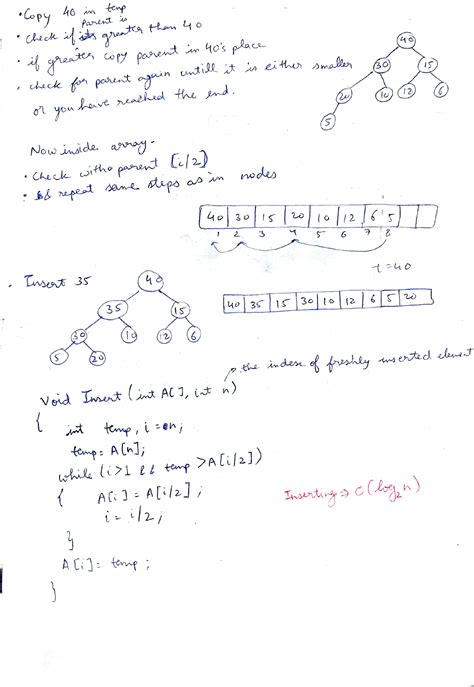 • Copy 40 in temp
Parent is
• Check if greater than 40
• if greater copy parent in 40's place
• check for parent again untill it is either smaller
or you have reached the end.
40
30 15
20 10 12 6
5
Now inside array -
• Check with parent [i/2]
• repeat same steps as in nodes
40 30 15 20 10 12 6 5
1 2 3 4 5 6 7 8
t = 40
• Insert 35
40
35 15
30 10 12 6
5 20
40 35 15 30 10 12 6 5 20
the index of freshly inserted element
void Insert (int A[], int n)
{
int temp, i = n;
temp = A[n];
while (i>1 && temp > A[i/2])
{ A[i] = A[i/2];
i = i/2;
}
A[i] = temp;
}
Inserting ⇒ O(log₂n)